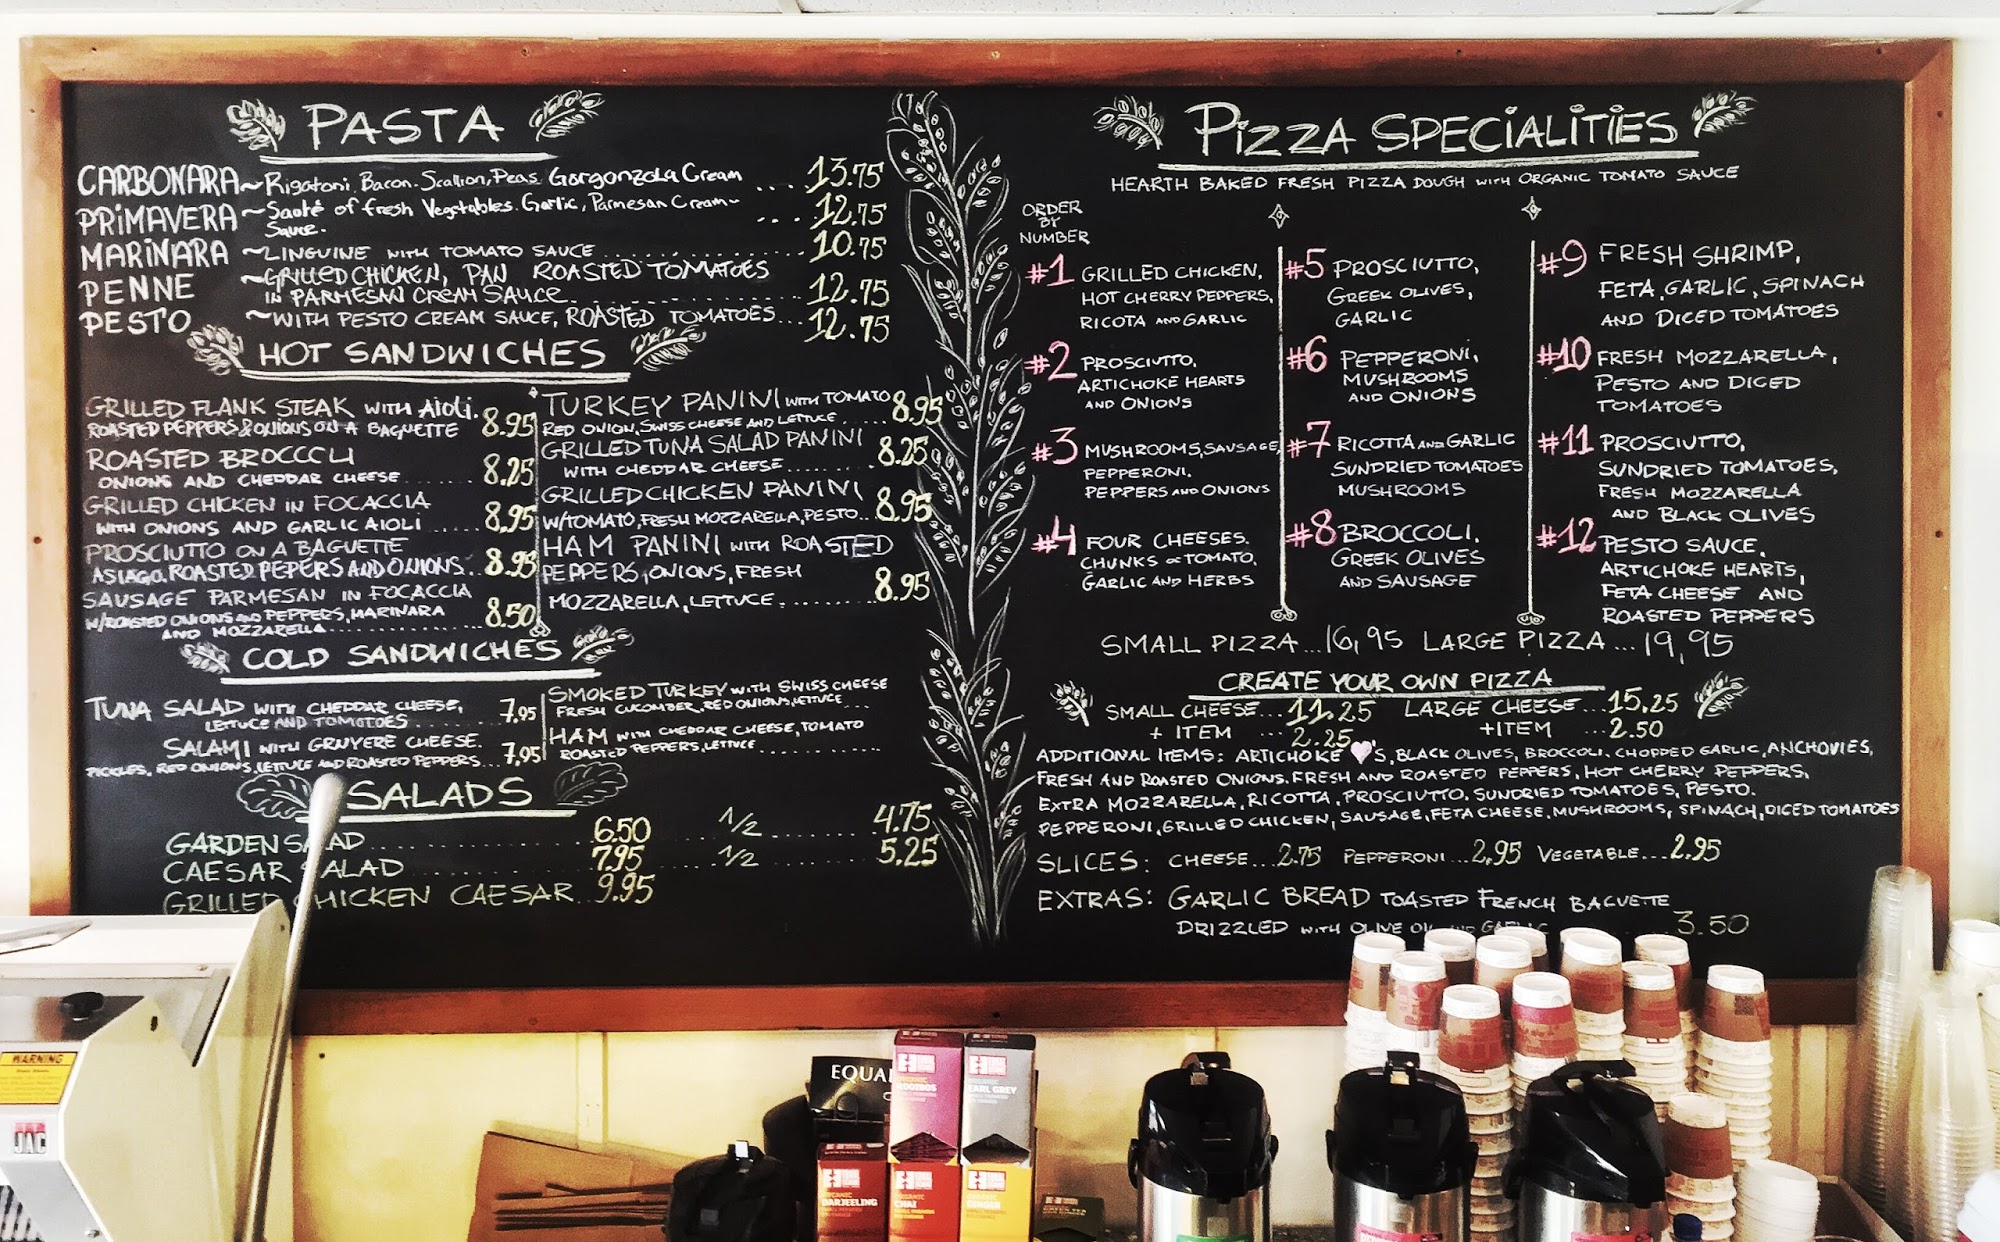 PASTA
CARBONARA ~ Rigatoni, Bacon, Scallion, Peas, Gorgonzola Cream .... 13.75
PRIMAVERA ~ Sauté of fresh Vegetables. Garlic, Parmesan Cream~ ... 12.75
Sauce.
MARINARA ~ LINGUINE WITH TOMATO SAUCE ........ 10.75
PENNE ~ GRILLED CHICKEN, PAN ROASTED TOMATOES
IN PARMESAN CREAM SAUCE ........ 12.75
PESTO ~ WITH PESTO CREAM SAUCE, ROASTED TOMATOES... 12.75
HOT SANDWICHES
GRILLED FLANK STEAK WITH AIOLI.
ROASTED PEPPERS & ONIONS ON A BAGUETTE 8.95
ROASTED BROCCCLI
ONIONS AND CHEDDAR CHEESE ........ 8.25
GRILLED CHICKEN IN FOCACCIA
WITH ONIONS AND GARLIC AIOLI ..... 8.95
PROSCIUTTO ON A BAGUETTE
ASIAGO, ROASTED PEPERS AND ONIONS.. 8.95
SAUSAGE PARMESAN IN FOCACCIA
W/ROASTED ONIONS AND PEPPERS, MARINARA
AND MOZZARELLA ........ 8.50
TURKEY PANINI WITH TOMATO
RED ONION, SWISS CHEESE AND LETTUCE... 8.95
GRILLED TUNA SALAD PANINI
WITH CHEDDAR CHEESE ........ 8.25
GRILLED CHICKEN PANINI
W/TOMATO, FRESH MOZZARELLA, PESTO... 8.95
HAM PANINI WITH ROASTED
PEPPERS, ONIONS, FRESH
MOZZARELLA, LETTUCE ........ 8.95
COLD SANDWICHES
TUNA SALAD WITH CHEDDAR CHEESE,
LETTUCE AND TOMATOES ........ 7.95
SALAMI WITH GRUYERE CHEESE.
PICKLES, RED ONIONS, LETTUCE AND ROASTED PEPPERS... 7.95
SMOKED TURKEY WITH SWISS CHEESE
FRESH CUCUMBER, RED ONIONS, LETTUCE....
HAM WITH CHEDDAR CHEESE, TOMATO
ROASTED PEPPERS, LETTUCE ........
SALADS
GARDEN SALAD ........ 6.50 1/2 ........ 4.75
CAESAR SALAD ........ 7.95 1/2 ........ 5.25
GRILLED CHICKEN CAESAR.. 9.95
PIZZA SPECIALITIES
HEARTH BAKED FRESH PIZZA DOUGH WITH ORGANIC TOMATO SAUCE
ORDER
BY
NUMBER
#1 GRILLED CHICKEN,
HOT CHERRY PEPPERS,
RICOTA AND GARLIC
#2 PROSCIUTTO,
ARTICHOKE HEARTS
AND ONIONS
#3 MUSHROOMS, SAUSAGE,
PEPPERONI,
PEPPERS AND ONIONS
#4 FOUR CHEESES.
CHUNKS OF TOMATO,
GARLIC AND HERBS
#5 PROSCIUTTO,
GREEK OLIVES,
GARLIC
#6 PEPPERONI,
MUSHROOMS
AND ONIONS
#7 RICOTTA AND GARLIC
SUNDRIED TOMATOES
MUSHROOMS
#8 BROCCOLI,
GREEK OLIVES
AND SAUSAGE
#9 FRESH SHRIMP,
FETA, GARLIC, SPINACH
AND DICED TOMATOES
#10 FRESH MOZZARELLA,
PESTO AND DICED
TOMATOES
#11 PROSCIUTTO,
SUNDRIED TOMATOES,
FRESH MOZZARELLA
AND BLACK OLIVES
#12 PESTO SAUCE,
ARTICHOKE HEARTS,
FETA CHEESE AND
ROASTED PEPPERS
SMALL PIZZA...16,95 LARGE PIZZA...19,95
CREATE YOUR OWN PIZZA
SMALL CHEESE...11.25 LARGE CHEESE...15.25
+ ITEM ... 2.25 +ITEM ... 2.50
ADDITIONAL ITEMS: ARTICHOKE ♥'S, BLACK OLIVES, BROCCOLI, CHOPPED GARLIC, ANCHOVIES,
FRESH AND ROASTED ONIONS. FRESH AND ROASTED PEPPERS, HOT CHERRY PEPPERS,
EXTRA MOZZARELLA, RICOTTA, PROSCIUTTO, SUNDRIED TOMATOES, PESTO.
PEPPERONI, GRILLED CHICKEN, SAUSAGE, FETA CHEESE, MUSHROOMS, SPINACH, DICED TOMATOES
SLICES: CHEESE...2.75 PEPPERONI...2,95 VEGETABLE...2.95
EXTRAS: GARLIC BREAD TOASTED FRENCH BAGUETTE
DRIZZLED WITH OLIVE OIL AND GARLIC 3.50
WARNING
JAC
EQUAL
ORGANIC
ROOIBOS
ORGANIC
EARL GREY
ORGANIC
DARJEELING
ORGANIC
CHAI
ORGANIC
GINGER
GREEN TEA